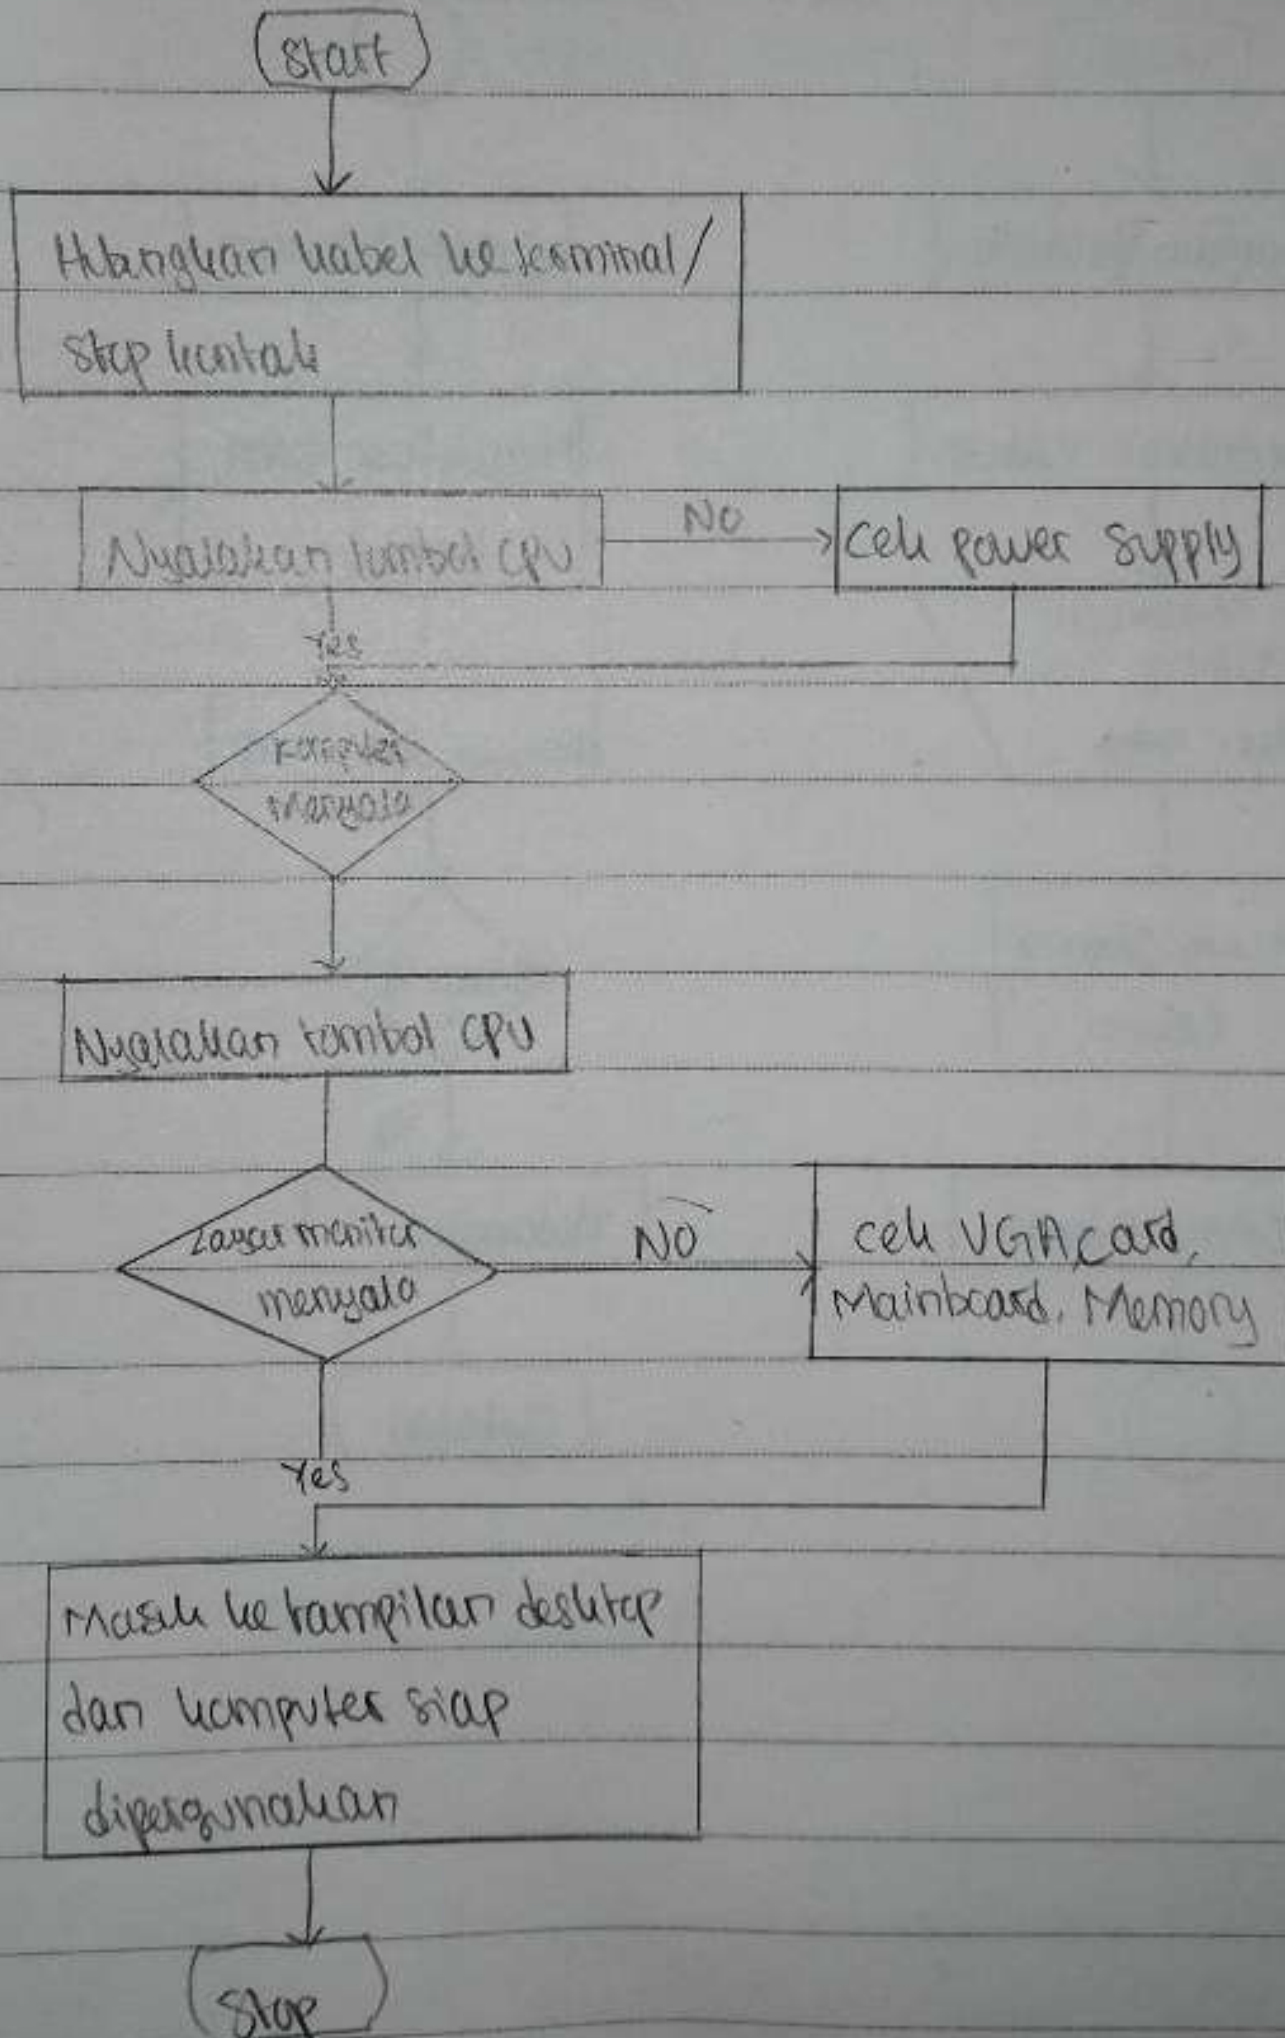 Start
Hubungkan kabel ke terminal/
Stop kontak
Nyalakan tombol CPU
No
Cek power Supply
Yes
Komputer
Menyala
Nyalakan tombol CPU
Layar monitor
menyala
NO
Cek VGA, Card,
Mainboard, Memory
Yes
Masuk ke tampilan desktop
dan komputer siap
dipergunakan
Stop